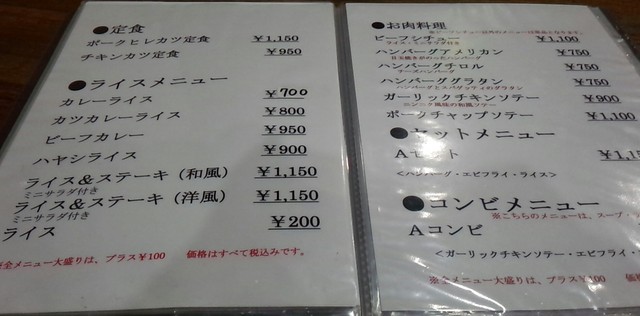 ●定食
ポークヒレカツ定食 ¥1,150
チキンカツ定食 ¥950
●ライスメニュー
カレーライス ¥700
カツカレーライス ¥800
ビーフカレー ¥950
ハヤシライス ¥900
ライス＆ステーキ（和風） ¥1,150
ミニサラダ付き
ライス＆ステーキ（洋風） ¥1,150
ミニサラダ付き
ライス ¥200
全メニュー大盛りは、プラス¥100 価格はすべて税込みです。
●お肉料理
ビーフシチュー ¥1,100
ライス・ミニサラダ付き
ハンバーグアメリカン ¥750
目玉焼きがのったハンバーグ
ハンバーグチロル ¥750
チーズハンバーグ
ハンバーググラタン ¥750
ハンバーグとスパゲッティのグラタン
ガーリックチキンソテー ¥900
ニンニク風味の和風ソテー
ポークチャップソテー ¥1,100
●セットメニュー
Aセット
＜ハンバーグ・エビフライ・ライス＞
●コンビメニュー
※こちらのメニューは、スープ・
Aコンビ
＜ガーリックチキンソテー・エビフライ・
※全メニュー大盛りは、プラス¥100 価格